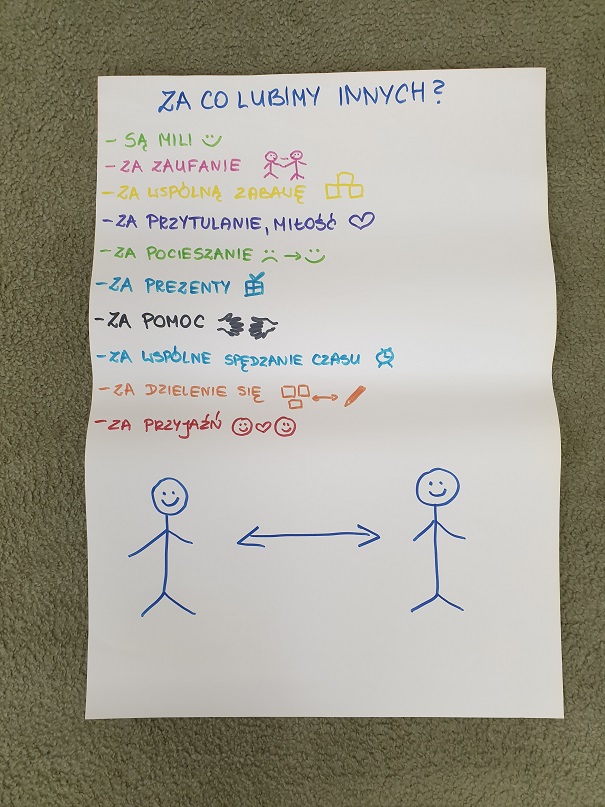 ZA CO LUBIMY INNYCH?
- SĄ MILI
- ZA ZAUFANIE
- ZA WSPÓLNĄ ZABAWĘ
- ZA PRZYTULANIE, MIŁOŚĆ
- ZA POCIESZANIE
- ZA PREZENTY
- ZA POMOC
- ZA WSPÓLNE SPĘDZANIE CZASU
- ZA DZIELENIE SIĘ
- ZA PRZYJAŹŃ